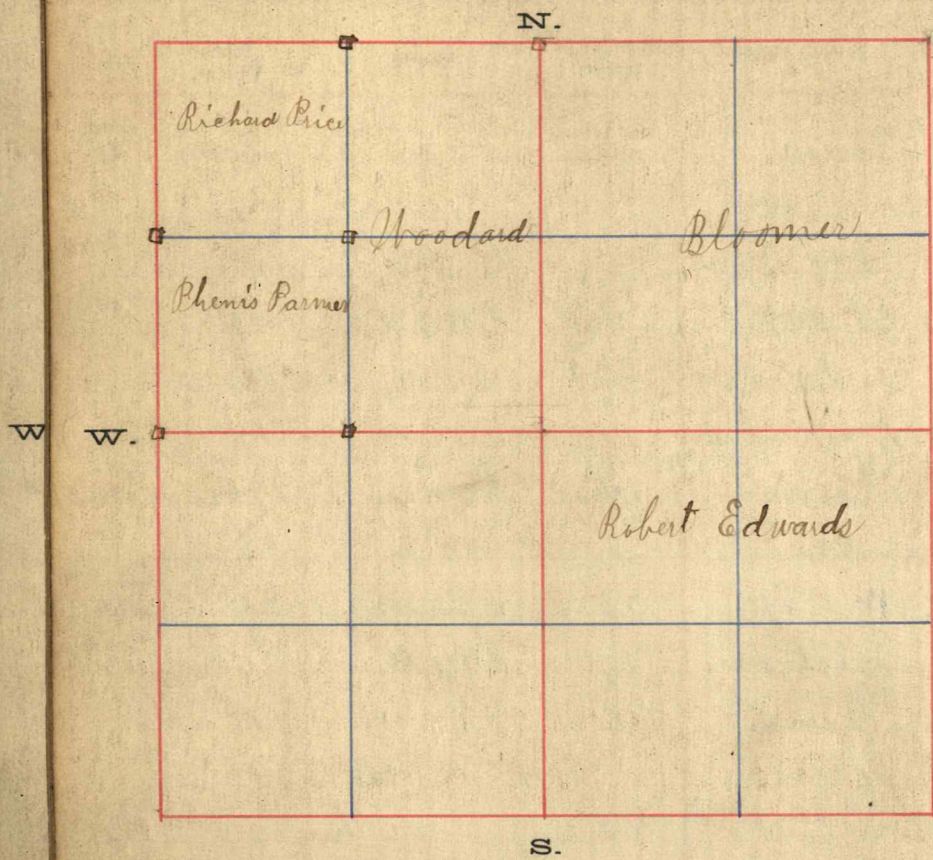 N.
Richard Price
Woodard Bloomer
Phenis Parmer
W W.
Robert Edwards
S.